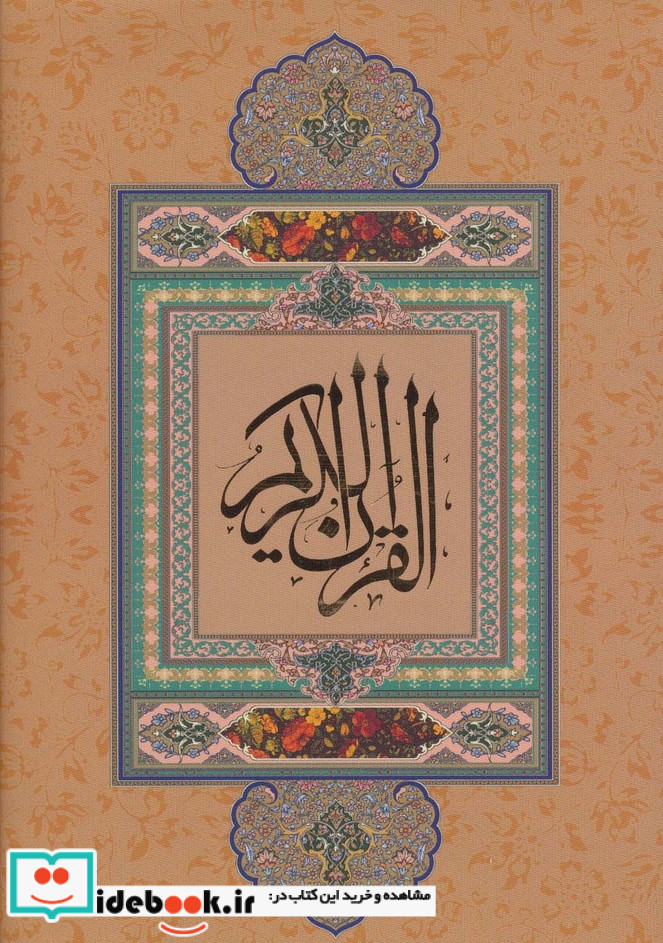 القرآن الكريم
مشاهده و خرید این کتاب در:
idebook.ir